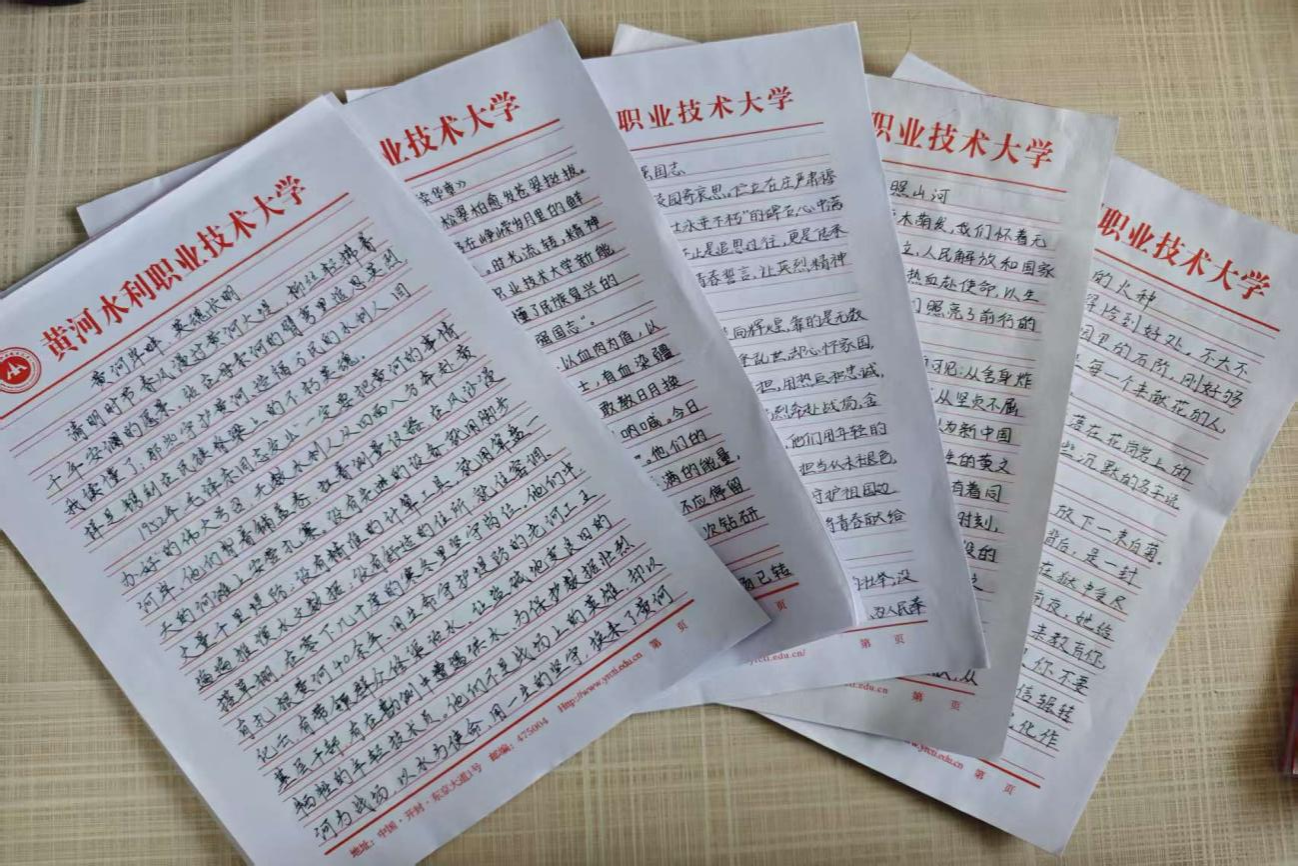 黄河水利职业技术大学
黄河岸畔 英魂长明
清明时节春风漫过黄河大堤，柳丝轻拂着
千年安澜的愿景，站在母亲河的臂弯里追思英烈
我读懂了：那些守护黄河、造福万民的水利人同
样是镌刻在民族脊梁上的不朽英魂。
1952年毛泽东同志发出“一定要把黄河的事情
办好”的伟大号召，无数水利人从四面八方奔赴黄
河岸。他们背着铺盖卷、扛着测量仪器，在风沙漫
天的河滩上安营扎寨，没有先进的设备就用脚步
丈量千里堤防，没有精准的计算工具就用算盘一
遍遍推演水文数据，没有舒适的住所就住窑洞、
搭草棚，在零下几十度的寒冬里坚守岗位。他们中，
有扎根黄河40余年、用生命守护堤防的老河工王
化云，有带领群众修渠治水、让盐碱地变良田的
基层干部，有在勘测中遭遇洪水、为保护数据壮烈
牺牲的年轻技术员。他们不是战场上的英雄，却以
河为战场，以水为使命，用一生的坚守，换来了黄河
地址：中国·开封·东京大道1号 邮编：475004 Http://www.yrcti.edu.cn 第 页
业技术大学
读华章》
松翠柏愈发苍翠挺拔。
在峥嵘岁月里的鲜
。时光流转，精神
职业技术大学新能
懂了民族复兴的
强国志”。
以血肉为盾，以
士，有血染疆
敢教日月换
呐喊。今日
。他们的
满的能量，
不应停留
次钻研
已转
页
职业技术大学
国志
园寄哀思。伫立在庄严肃穆
士永垂不朽”的碑石，心中满
止是追思过往，更是传承
青春誓言，让英烈精神
向辉煌，靠的是无数
乱世，却心怀家国，
担，用热血和忠诚，
烈奔赴战场，舍
他们用年轻的
担当从未褪色。
守护祖国边
将青春献给
壮举，没
为人民奉
.yrcti.edu.cn/ 第 页
职业技术大学
照山河
木萌发，我们怀着无
立、人民解放和国家
热血赴使命，以生
们照亮了前行的
可见：从舍身炸
从坚贞不屈
为新中国
的英文
有着同
时刻，
的
，从
.edu.cn 第 页
职业技术大学
的火种
得恰到好处，不大不
园里的石阶，刚好够
每一个来献花的人。
落在花岗岩上的
些沉默的名字说
放下一束白菊。
背后，是一封
在狱中受尽
前夜，她给
来教育你，
你不要
信辗转
化作
www.yrcti.edu.cn 第 页